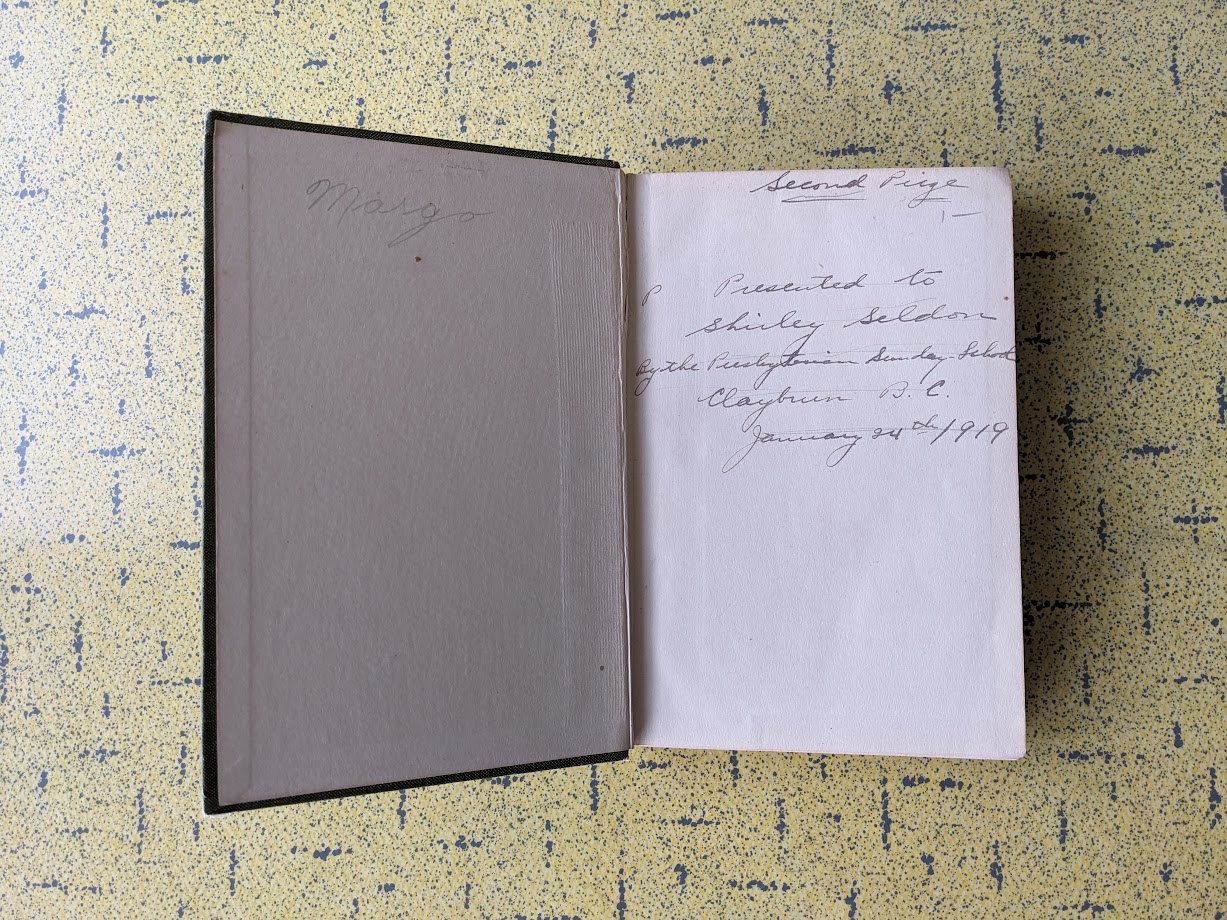 Margo
Second Prize
1 —
P Presented to
Shirley Seldon
By the Presbyterian Sunday-School
Clayburn B. C.
January 24th 1919